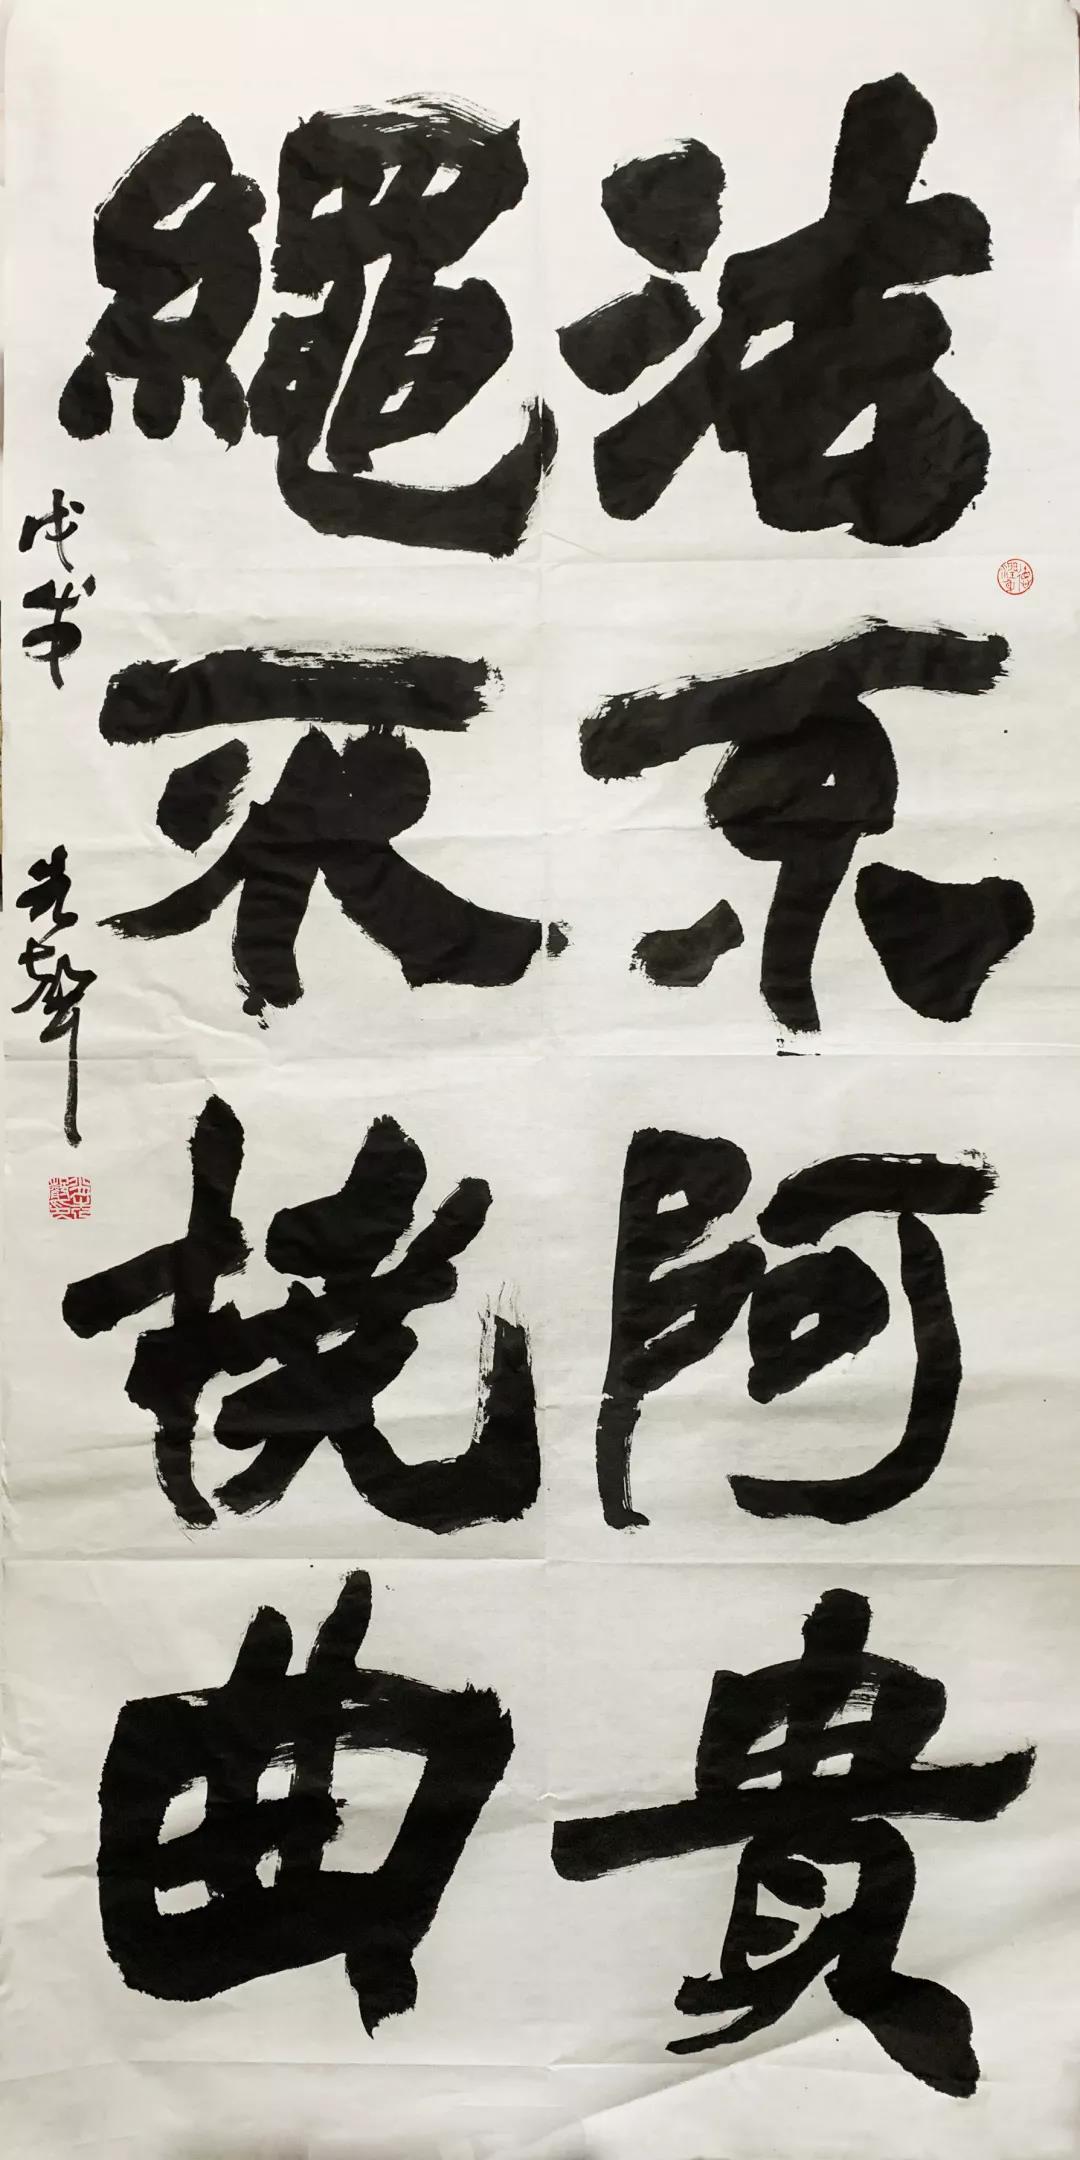 法不阿貴
繩不撓曲
戊戌 先聲